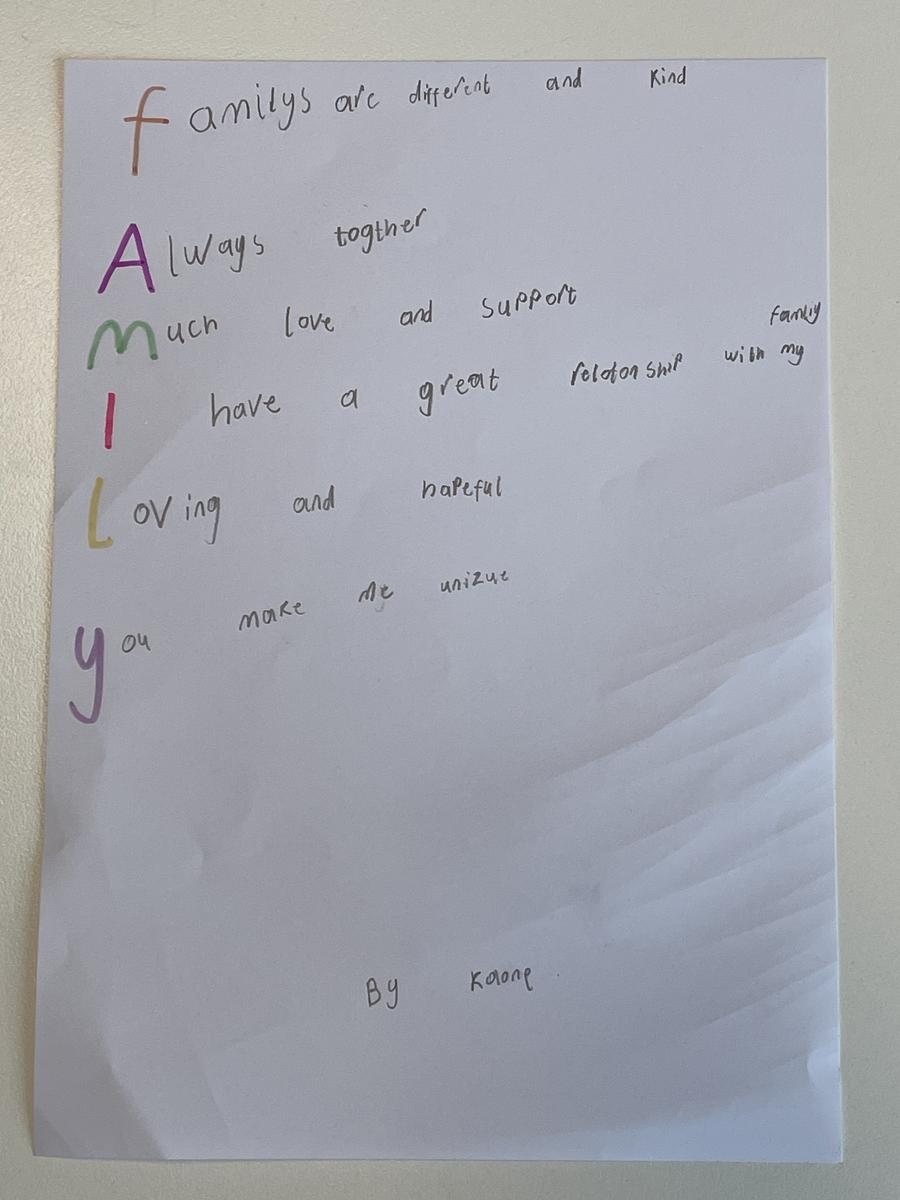 familys are different and kind
Always togther
Much love and support
I have a great relatonship with my family
Loving and hapeful
you make me unizue
By Kaone